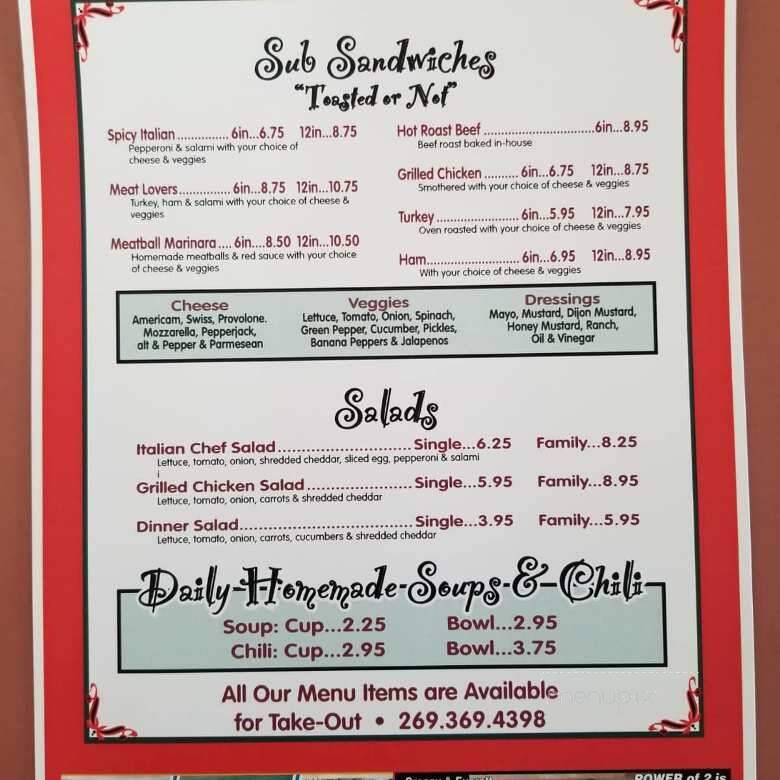 Sub Sandwiches
"Toasted or Not"
Spicy Italian .............. 6in...6.75 12in...8.75
Pepperoni & salami with your choice of
cheese & veggies
Meat Lovers.............. 6in...8.75 12in...10.75
Turkey, ham & salami with your choice of cheese &
veggies
Meatball Marinara .... 6in....8.50 12in...10.50
Homemade meatballs & red sauce with your choice
of cheese & veggies
Hot Roast Beef ..............................6in...8.95
Beef roast baked in-house
Grilled Chicken ......... 6in...6.75 12in...8.75
Smothered with your choice of cheese & veggies
Turkey ...................... 6in...5.95 12in...7.95
Oven roasted with your choice of cheese & veggies
Ham......................... 6in...6.95 12in...8.95
With your choice of cheese & veggies
Cheese
Americam, Swiss, Provolone.
Mozzarella, Pepperjack,
alt & Pepper & Parmesean
Veggies
Lettuce, Tomato, Onion, Spinach,
Green Pepper, Cucumber, Pickles,
Banana Peppers & Jalapenos
Dressings
Mayo, Mustard, Dijon Mustard,
Honey Mustard, Ranch,
Oil & Vinegar
Salads
Italian Chef Salad............................ Single...6.25 Family...8.25
Lettuce, tomato, onion, shredded cheddar, sliced egg, pepperoni & salami
i
Grilled Chicken Salad ...................... Single...5.95 Family...8.95
Lettuce, tomato, onion, carrots & shredded cheddar
Dinner Salad.................................... Single...3.95 Family...5.95
Lettuce, tomato, onion, carrots, cucumbers & shredded cheddar
Daily-Homemade-Soups-&-Chili
Soup: Cup...2.25 Bowl...2.95
Chili: Cup...2.95 Bowl...3.75
All Our Menu Items are Available
for Take-Out • 269.369.4398
POWER of 2 is